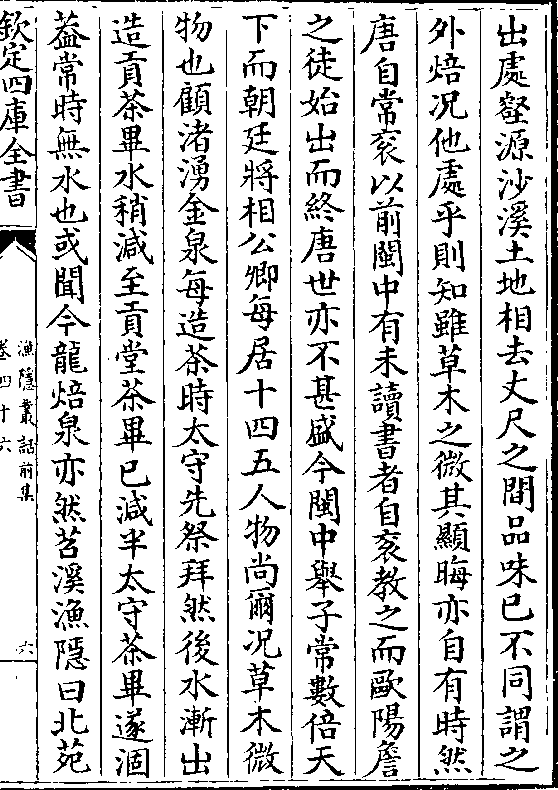 出處壑源沙溪土地相去丈尺之間品味已不同謂之
外焙况他處乎則知雖草木之微其顯晦亦自有時然
唐自常衮以前閩中有未讀書者自衮教之而歐陽詹
之徒始出而終唐世亦不甚盛今閩中舉子常數倍天
下而朝廷將相公卿每居十四五人物尚爾况草木微
物也顧渚湧金泉每造茶時太守先祭拜然後水漸出
造貢茶畢水稍減至貢堂茶畢已減半太守茶畢遂涸
葢常時無水也或聞今龍焙泉亦然苕溪漁隱曰北苑
欽定四庫全書
漁隱叢話前集
卷四十六
六